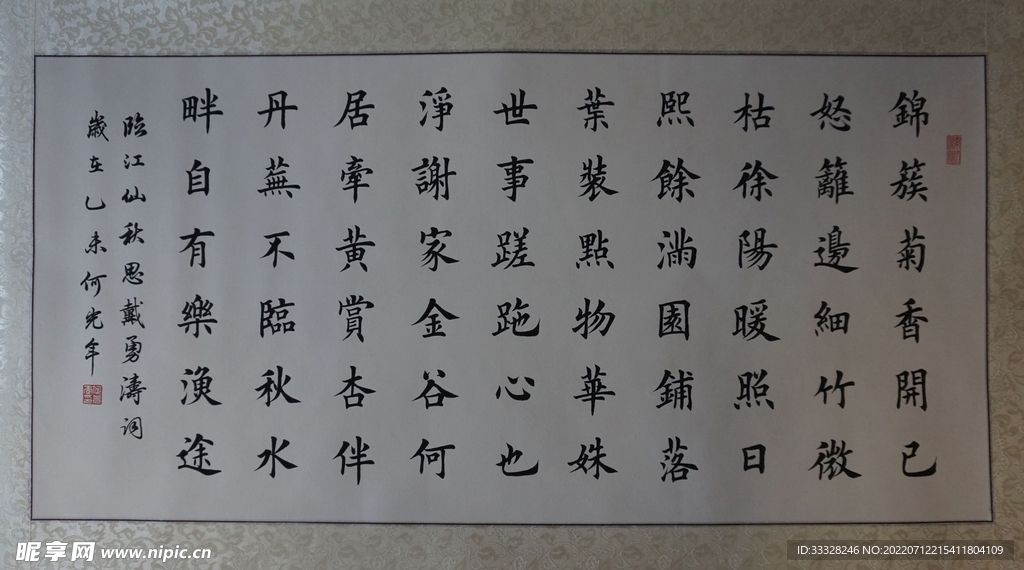 錦蔟菊香開已
怒籬邊細竹微
枯徐陽暖照日
熙餘滿園鋪落
葉裝點物華姝
世事蹉跎心也
淨謝家金谷何
居牽黃賞杏伴
丹蕪不臨秋水
畔自有樂漁途
臨江仙秋思戴勇濤詞
歲在乙未何光年
昵享网 www.nipic.cn
ID:33328246 NO:20220712215411804109